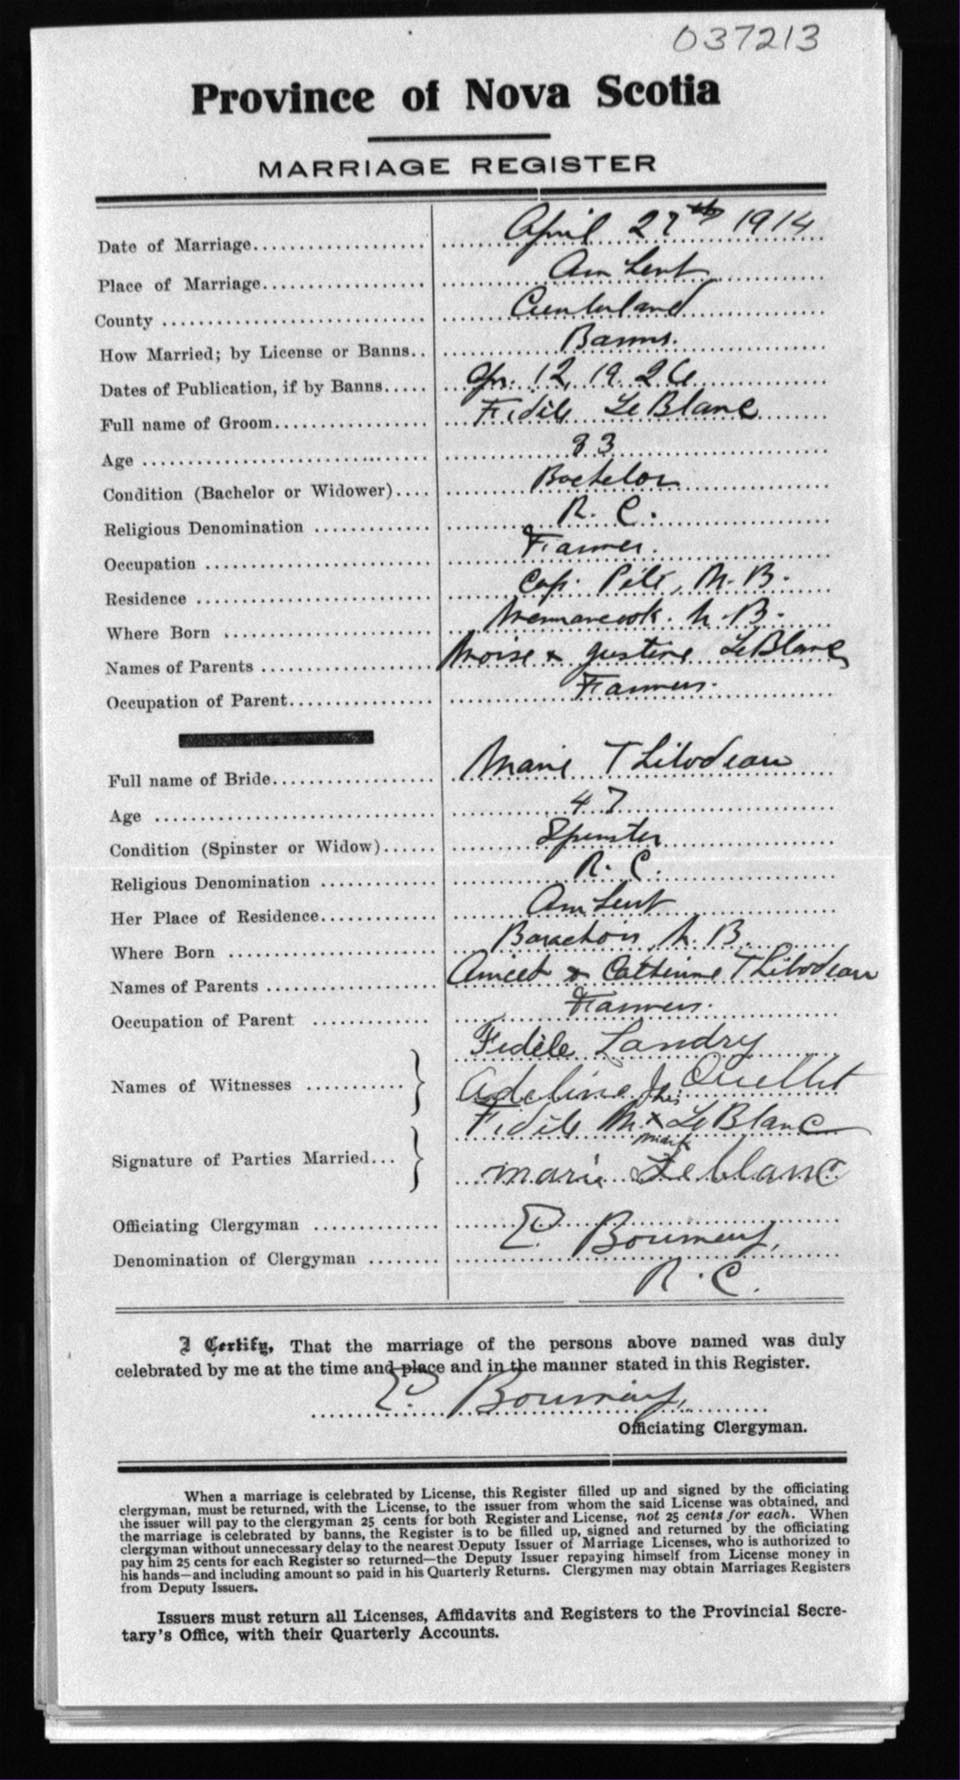 037213
Province of Nova Scotia
MARRIAGE REGISTER
Date of Marriage.................... April 27th 1914
Place of Marriage................... Amherst
County ............................. Cumberland
How Married; by License or Banns.. Banns.
Dates of Publication, if by Banns..... Ap. 12, 19. 26
Full name of Groom.................. Fidèle LeBlanc
Age ................................ 83
Condition (Bachelor or Widower).... Bachelor
Religious Denomination ............. R. C.
Occupation ......................... Farmer.
Residence .......................... Cap. Pélé, N. B.
Where Born ......................... Memramcook. N. B.
Names of Parents ................... Moise & Justine LeBlanc
Occupation of Parent................ Farmers.
Full name of Bride.................. Marie Thibodeau
Age ................................ 47
Condition (Spinster or Widow)...... Spinster
Religious Denomination ............. R. C.
Her Place of Residence............. Amherst
Where Born ......................... Barachois, N. B.
Names of Parents ................... Amicet & Catherine Thibodeau
Occupation of Parent ............... Farmers.
Fidèle Landry
Names of Witnesses ........... } Adeline Ouellet
his
Fidèle M. x LeBlanc
mark
Signature of Parties Married... } Marie Leblanc
Officiating Clergyman .............. E. Bourneuf,
Denomination of Clergyman ........ R. C.
I Certify, That the marriage of the persons above named was duly
celebrated by me at the time and place and in the manner stated in this Register.
E. Bourneuf,
Officiating Clergyman.
When a marriage is celebrated by License, this Register filled up and signed by the officiating
clergyman, must be returned, with the License, to the issuer from whom the said License was obtained, and
the issuer will pay to the clergyman 25 cents for both Register and License, not 25 cents for each. When
the marriage is celebrated by banns, the Register is to be filled up, signed and returned by the officiating
clergyman without unnecessary delay to the nearest Deputy Issuer of Marriage Licenses, who is authorized to
pay him 25 cents for each Register so returned—the Deputy Issuer repaying himself from License money in
his hands—and including amount so paid in his Quarterly Returns. Clergymen may obtain Marriages Registers
from Deputy Issuers.
Issuers must return all Licenses, Affidavits and Registers to the Provincial Secre-
tary's Office, with their Quarterly Accounts.